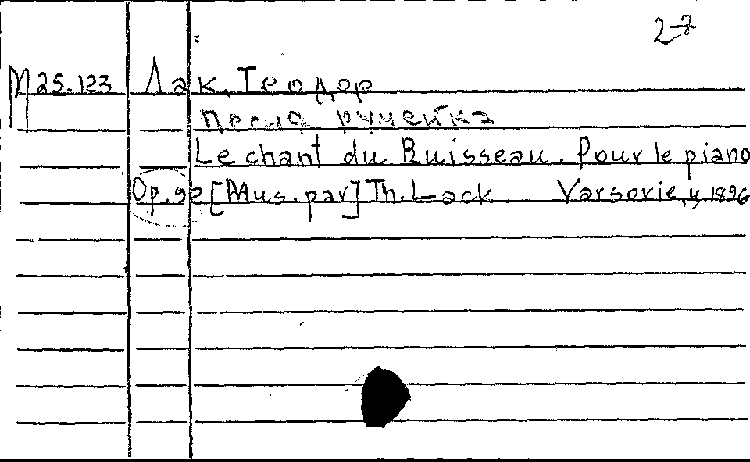 2-7
М 25.123 Лак, Теодор
Песня ручейка
Le chant du Ruisseau. Pour le piano
Op. 92 [Mus. par] Th. Lack. Varsovie, 1896